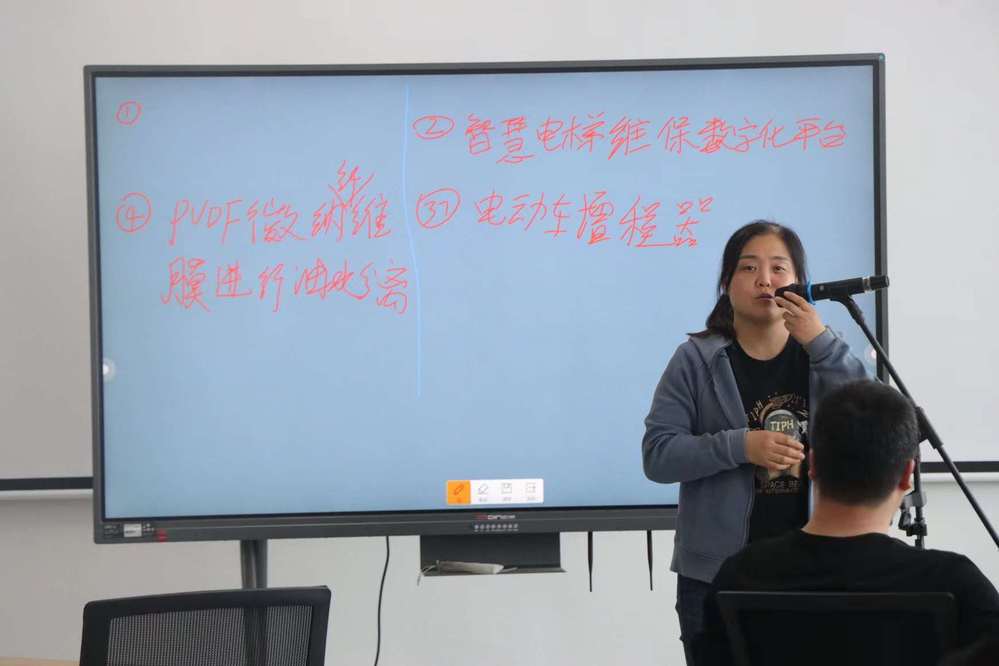 ①
② 智慧电梯维保数字化平台
④ PVDF微纳纤维
膜进行油水分离
③ 电动车增程器
TIPH
SPACE BE